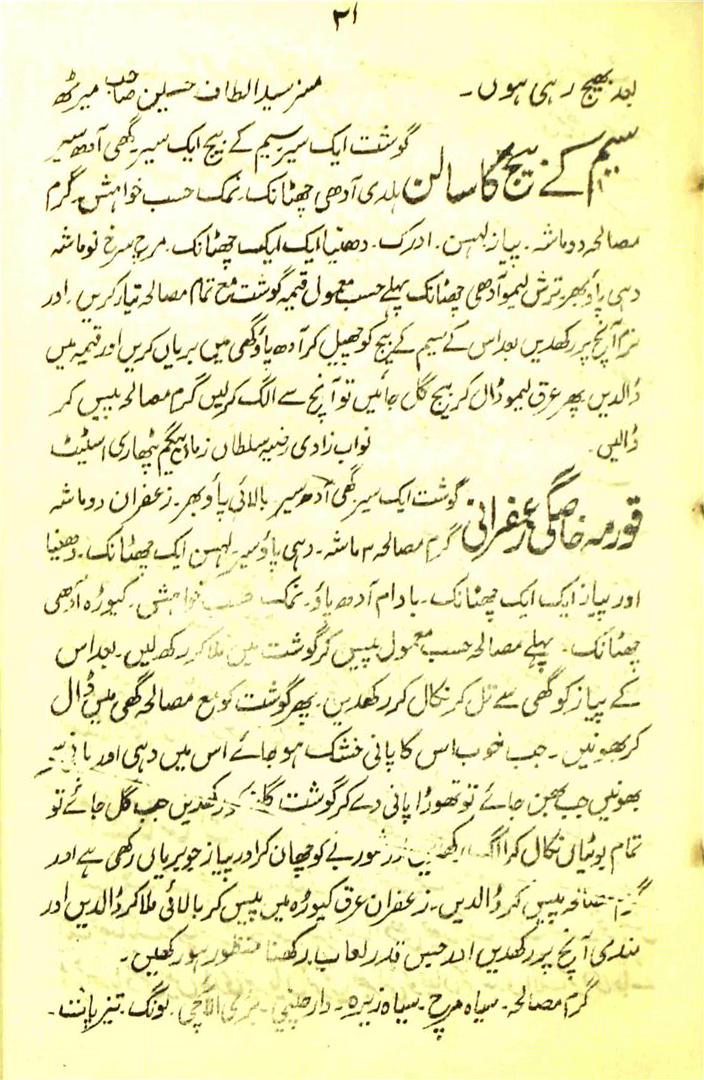 ۳۱
بعد بھیج رہی ہوں۔ مسز سید الطاف حسین صاحب میرٹھ
سیم کے بیج کا سالن گوشت ایک سیر سیم کے بیج ایک سیر۔ گھی آدھ سیر
ہلدی آدھی چھٹانک۔ نمک حسب خواہش۔ گرم
مصالحہ دو ماشہ۔ پیاز لہسن۔ ادرک۔ دھنیا ایک ایک چھٹانک۔ مرچ سرخ نو ماشہ
دہی پاؤ بھر ترش لیمو آدھی چھٹانک پہلے حسب معمول قیمہ گوشت مع تمام مصالحہ تیار کریں۔ اور
نرم آنچ پر رکھدیں بعد اس کے سیم کے بیج کو چھیل کر آدھ پاؤ گھی میں بریاں کریں اور قیمہ میں
ڈالدیں پھر عرق لیمو ڈال کر بیج گل جائیں تو آنچ سے الگ کرلیں گرم مصالحہ پیس کر
ڈالیں۔ نواب زادی رضیہ سلطان زمان بیگم پٹھاری اسٹیٹ
قورمہ خاصگی زعفرانی گوشت ایک سیر گھی آدھ سیر بالائی پاؤ بھر۔ زعفران دو ماشہ
گرم مصالحہ ۳ ماشہ۔ دہی پاؤ سیر۔ لہسن ایک چھٹانک۔ دھنیا
اور پیاز ایک ایک چھٹانک۔ بادام آدھ پاؤ۔ نمک حسب خواہش۔ کیوڑہ آدھی
چھٹانک۔ پہلے مصالحہ حسب معمول پیس کر گوشت میں ملا کر رکھ لیں۔ بعد اس
کے پیاز کو گھی سے تل کر نکال کر رکھدیں۔ پھر گوشت کو مع مصالحہ گھی میں ڈال
کر بھونیں۔ جب خوب اس کا پانی خشک ہو جائے اس میں دہی اور پانی سے
بھونیں جب بھن جائے تو تھوڑا پانی دے کر گوشت رکھدیں جب گل جائے تو
تمام بوٹیاں نکال کر الگ رکھیں اور شوربے کو چھان کر اور پیاز جو بریاں رکھی ہے اور
گرم مصالحہ پیس کر ڈالدیں۔ زعفران عرق کیوڑہ میں پیس کر بالائی ملا کر ڈالدیں اور
مندی آنچ پر رکھدیں اور جس قدر لعاب رکھنا منظور ہو رکھیں۔
گرم مصالحہ۔ سیاہ مرچ۔ سیاہ زیرہ۔ دارچینی۔ بڑی الائچی۔ لونگ۔ تیز پات۔